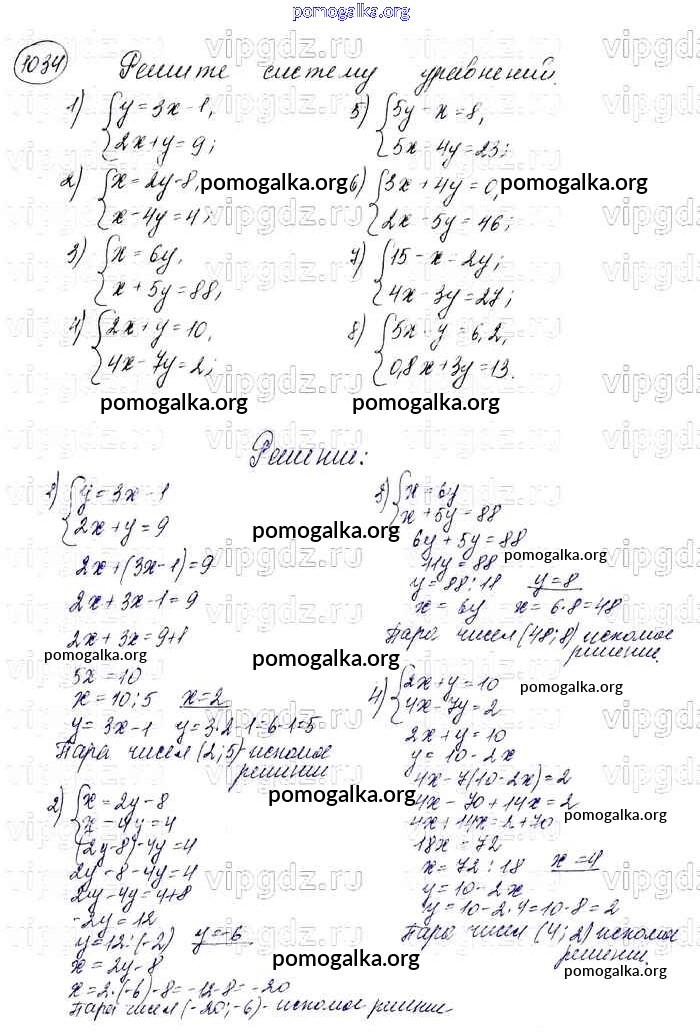 pomogalka.org
1034 Решите систему уравнений.
1) { y = 3x - 1,
2x + y = 9;
2) { x = 2y - 8,
x - 4y = 4;
3) { x = 6y,
x + 5y = 88,
4) { 2x + y = 10,
4x - 7y = 2;
5) { 5y - x = 8,
5x - 4y = 23;
6) { 3x + 4y = 0,
2x - 5y = 46;
7) { 15 - x = 2y;
4x - 3y = 27;
8) { 5x - y = 6,2,
0,8x + 3y = 13.
pomogalka.org pomogalka.org
pomogalka.org pomogalka.org
Решение:
1) { y = 3x - 1
2x + y = 9
2x + (3x - 1) = 9
2x + 3x - 1 = 9
2x + 3x = 9 + 1
5x = 10
x = 10 : 5 x = 2
y = 3x - 1 y = 3·2 - 1 = 6 - 1 = 5
Пара чисел (2; 5) - искомое
решение
2) { x = 2y - 8
x - 4y = 4
(2y - 8) - 4y = 4
2y - 8 - 4y = 4
2y - 4y = 4 + 8
-2y = 12
y = 12 : (-2) y = -6
x = 2y - 8
x = 2·(-6) - 8 = -12 - 8 = -20
Пара чисел (-20; -6) - искомое решение
3) { x = 6y
x + 5y = 88
6y + 5y = 88
11y = 88
y = 88 : 11 y = 8
x = 6y x = 6·8 = 48
Пара чисел (48; 8) искомое
решение.
4) { 2x + y = 10
4x - 7y = 2
2x + y = 10
y = 10 - 2x
4x - 7(10 - 2x) = 2
4x - 70 + 14x = 2
4x + 14x = 2 + 70
18x = 72
x = 72 : 18 x = 4
y = 10 - 2x
y = 10 - 2·4 = 10 - 8 = 2
Пара чисел (4; 2) искомое
решение.
pomogalka.org
pomogalka.org
pomogalka.org
pomogalka.org
pomogalka.org
pomogalka.org
pomogalka.org
pomogalka.org
pomogalka.org
vipgdz.ru